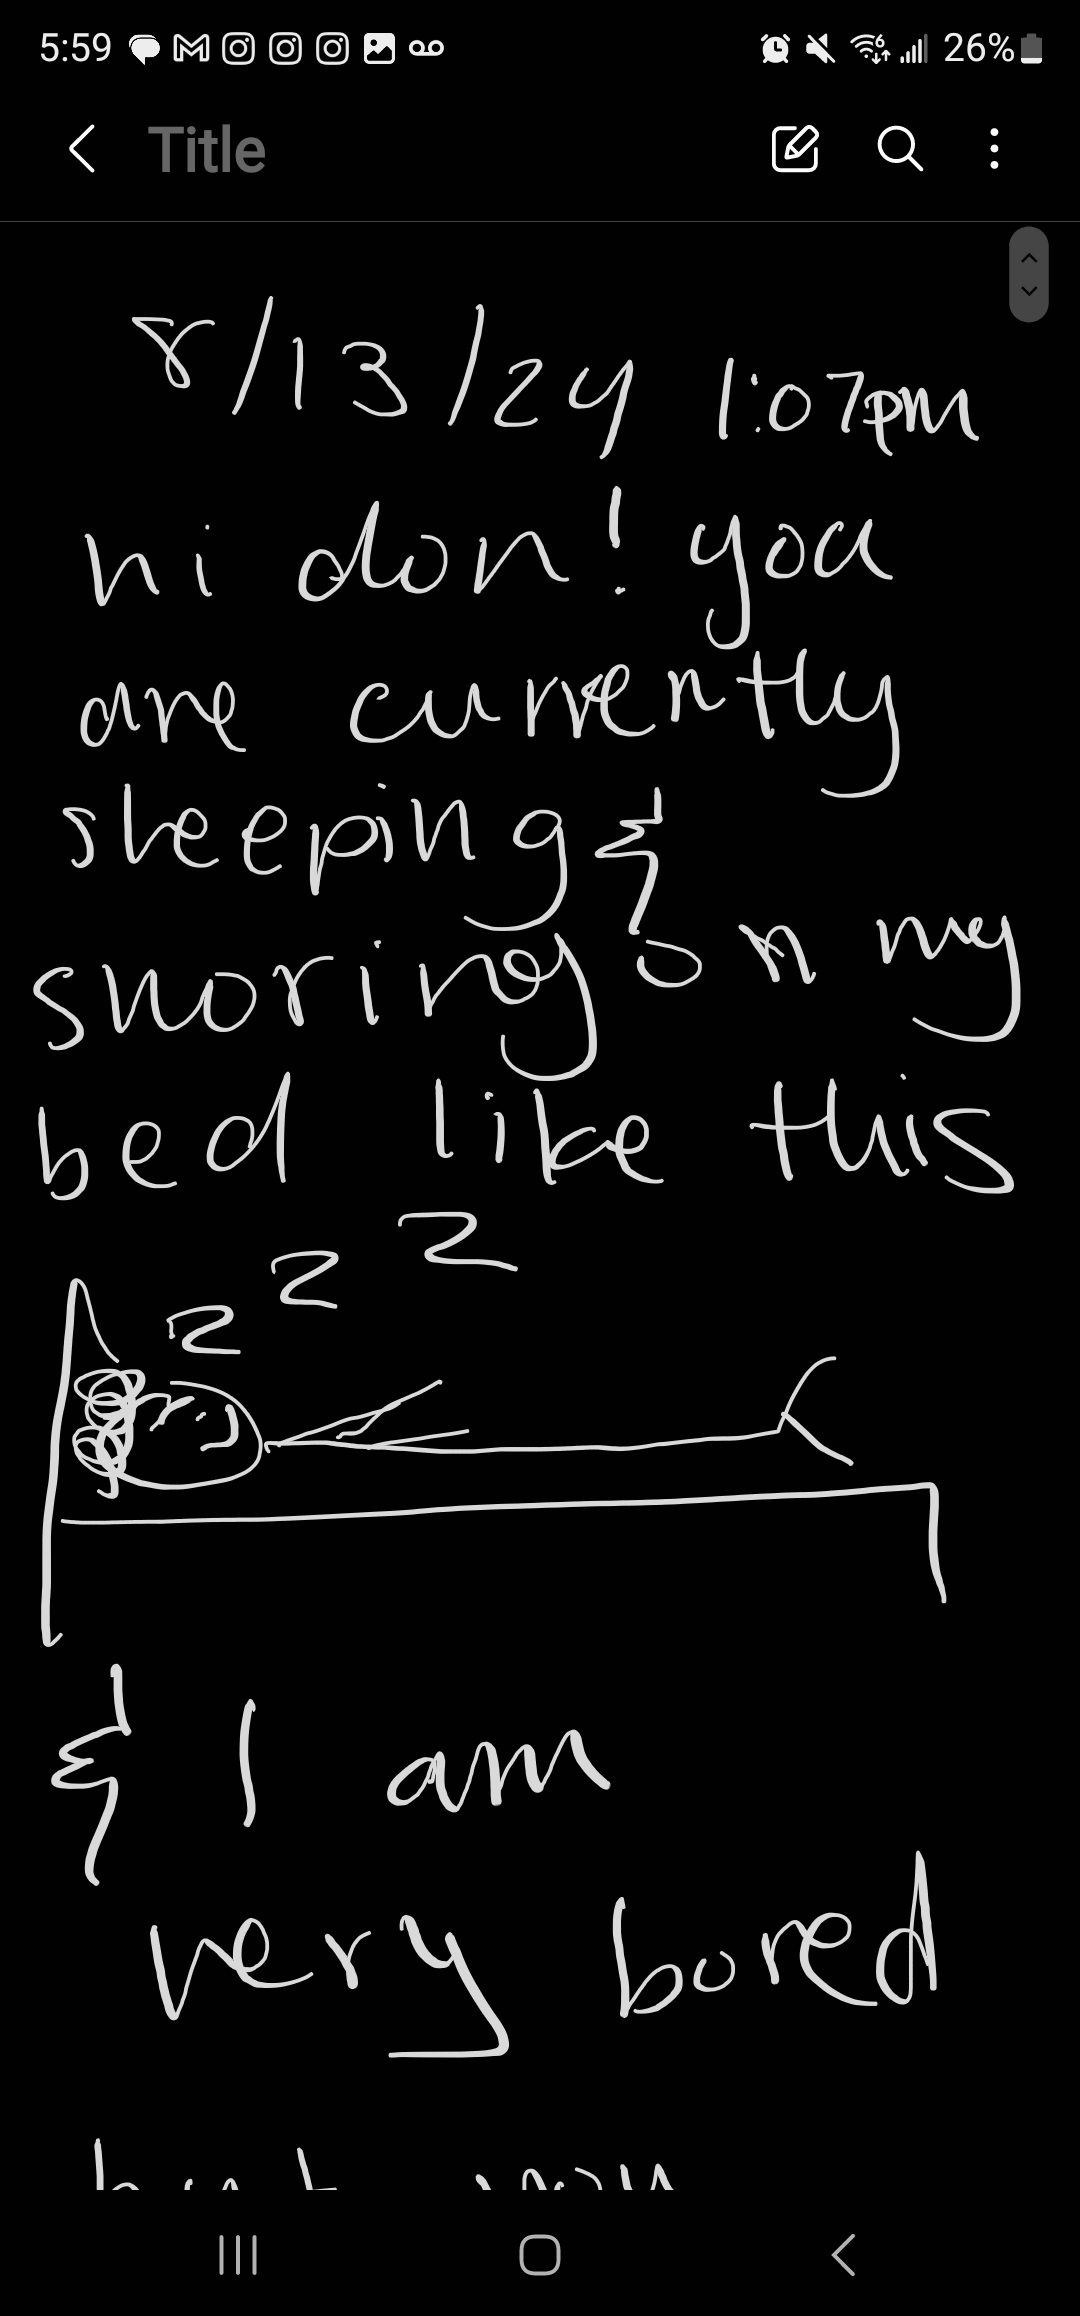 5:59 26%
Title
8/13/24 1:07pm
hi don! you
are currently
sleeping &
snoring on my
bed like this
z z z
& I am
very bored
but you